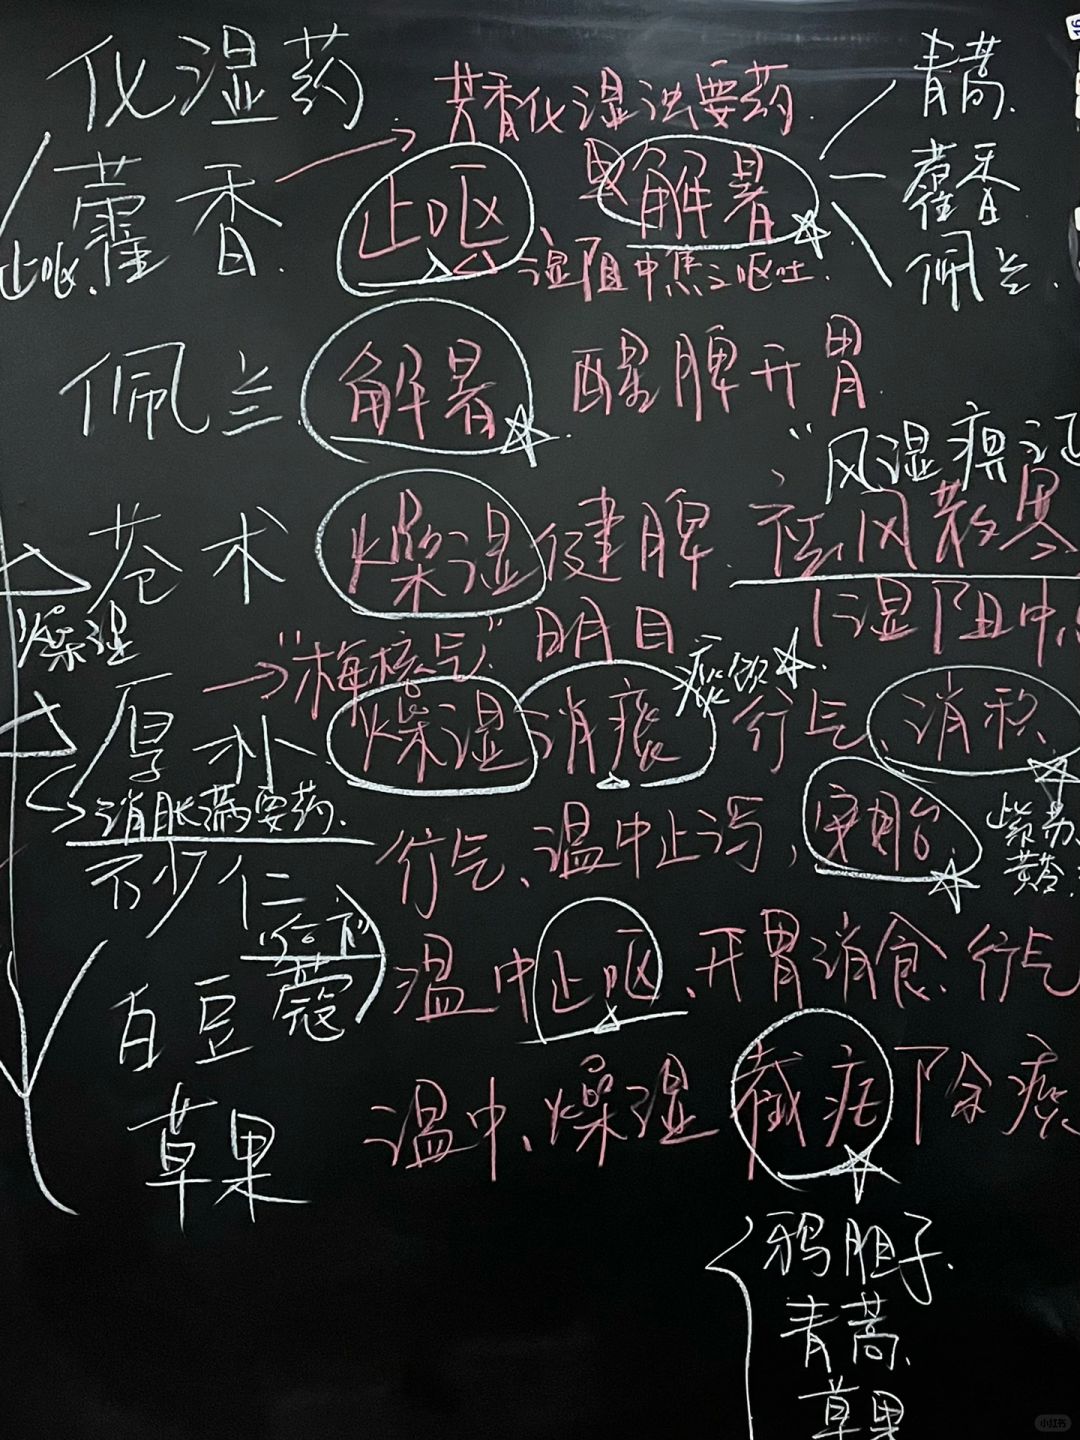 化湿药
芳香化湿浊要药.
青蒿.
藿香.
止呕、
解暑
藿香
止呕.
湿阻中焦之呕吐.
佩兰.
佩兰
解暑
醒脾开胃
"风湿痹证
苍术
燥湿健脾
祛风散寒
明目
湿阻中
燥湿
"梅核气"
厚朴
燥湿消痰
痰饮
行气
消积
消胀满要药.
紫苏、
黄芩、
砂仁
行气、温中止泻,安胎
后下
白豆蔻
温中止呕、开胃消食、行气
草果
温中、燥湿 截疟 除痰
鸦胆子.
青蒿.
草果
小红书